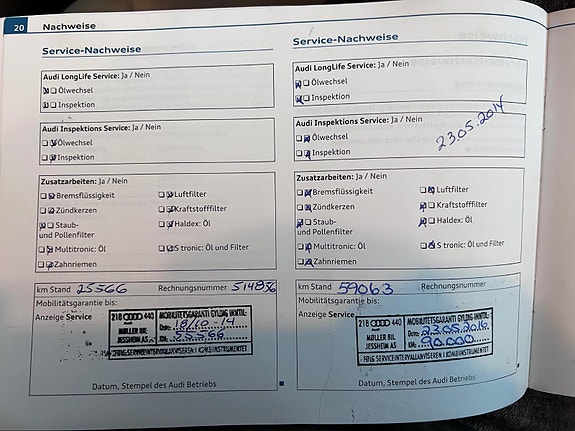 20 Nachweise
Service-Nachweise
Audi LongLife Service: Ja / Nein
Ölwechsel
Inspektion
Audi Inspektions Service: Ja / Nein
Ölwechsel
Inspektion
Zusatzarbeiten: Ja / Nein
Bremsflüssigkeit Luftfilter
Zündkerzen Kraftstofffilter
Staub- Haldex: Öl
und Pollenfilter
Multitronic: Öl S tronic: Öl und Filter
Zahnriemen
km Stand 25566 Rechnungsnummer 514856
Mobilitätsgarantie bis:
Anzeige Service
218 AUDI 440 MOBILITETSGARANTI GYLDIG INNTIL:
MØLLER BIL Dato: 18/10-14
JESSHEIM AS KM: 25566
FØLG SERVICEINTERVALLANVISEREN I KOMBIINSTRUMENTET
Datum, Stempel des Audi Betriebs
Service-Nachweise
Audi LongLife Service: Ja / Nein
Ölwechsel
Inspektion
Audi Inspektions Service: Ja / Nein
Ölwechsel
Inspektion
23.05.2014
Zusatzarbeiten: Ja / Nein
Bremsflüssigkeit Luftfilter
Zündkerzen Kraftstofffilter
Staub- Haldex: Öl
und Pollenfilter
Multitronic: Öl S tronic: Öl und Filter
Zahnriemen
km Stand 59063 Rechnungsnummer
Mobilitätsgarantie bis:
Anzeige Service
218 AUDI 440 MOBILITETSGARANTI GYLDIG INNTIL:
MØLLER BIL Dato: 23.05.2016
JESSHEIM AS KM: 90.000
FØLG SERVICEINTERVALLANVISEREN I KOMBIINSTRUMENTET
Datum, Stempel des Audi Betriebs